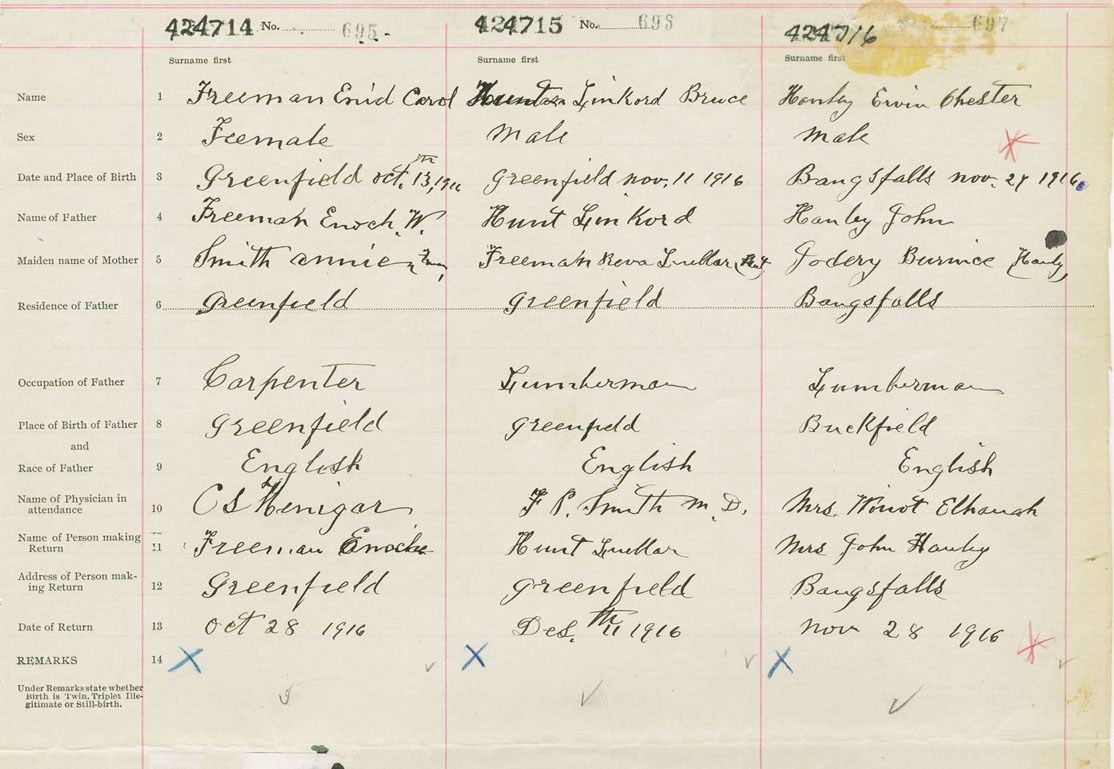 424714 No. 695 424715 No. 696 424716 697
Surname first Surname first Surname first
Name 1 Freeman Enid Carol Hunt Linkord Bruce Hanley Ervin Chester
Sex 2 Feemale Male Male
Date and Place of Birth 3 Greenfield oct. 13th, 1916 Greenfield nov. 11 1916 Bangsfalls nov. 27 1916
Name of Father 4 Freeman Enoch W. Hunt Linkord Hanley John
Maiden name of Mother 5 Smith annie Freeman Reva Luellar (Hunt Godery Burnice (Hanley)
Residence of Father 6 Greenfield Greenfield Bangsfalls
Occupation of Father 7 Carpenter Lumberman Lumberman
Place of Birth of Father 8 Greenfield Greenfield Buckfield
and
Race of Father 9 English English English
Name of Physician in
attendance 10 C S Henigar F P. Smith M. D. Mrs. Elhanah
Name of Person making
Return 11 Freeman Enoch Hunt Luellar Mrs John Hanley
Address of Person mak-
ing Return 12 Greenfield Greenfield Bangsfalls
Date of Return 13 Oct 28 1916 Des. 11th 1916 nov 28 1916
REMARKS 14 X X X
Under Remarks state whether
Birth is Twin, Triplet Ille-
gitimate or Still-birth.